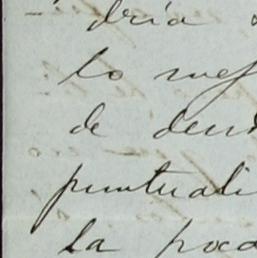 dría
lo mej
de deud
puntuali
La poca